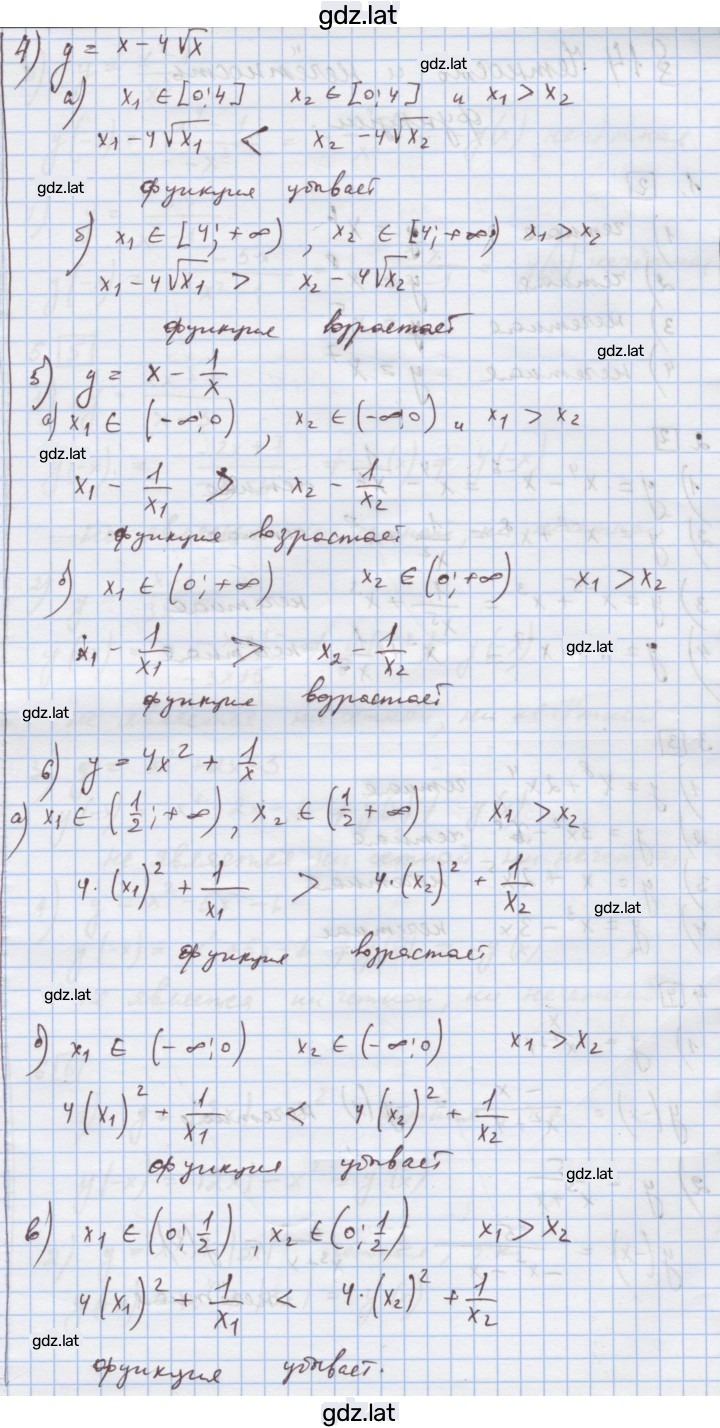 gdz.lat
4) y = x - 4√x
gdz.lat
а) x₁ ∈ [0; 4] x₂ ∈ [0; 4] и x₁ > x₂
x₁ - 4√x₁ < x₂ - 4√x₂
gdz.lat
функция убывает
б) x₁ ∈ [4; +∞), x₂ ∈ [4; +∞) x₁ > x₂
x₁ - 4√x₁ > x₂ - 4√x₂
функция возрастает
gdz.lat
5) y = x - 1/x
а) x₁ ∈ (-∞; 0), x₂ ∈ (-∞; 0) и x₁ > x₂
gdz.lat
x₁ - 1/x₁ > x₂ - 1/x₂
функция возрастает
б) x₁ ∈ (0; +∞) x₂ ∈ (0; +∞) x₁ > x₂
x₁ - 1/x₁ > x₂ - 1/x₂
gdz.lat
функция возрастает
gdz.lat
6) y = 4x² + 1/x
а) x₁ ∈ (1/2; +∞), x₂ ∈ (1/2 + ∞) x₁ > x₂
4·(x₁)² + 1/x₁ > 4·(x₂)² + 1/x₂
gdz.lat
функция возрастает
gdz.lat
б) x₁ ∈ (-∞; 0) x₂ ∈ (-∞; 0) x₁ > x₂
4(x₁)² + 1/x₁ < 4(x₂)² + 1/x₂
функция убывает
gdz.lat
в) x₁ ∈ (0; 1/2), x₂ ∈ (0; 1/2) x₁ > x₂
4(x₁)² + 1/x₁ < 4·(x₂)² + 1/x₂
gdz.lat
функция убывает.
gdz.lat